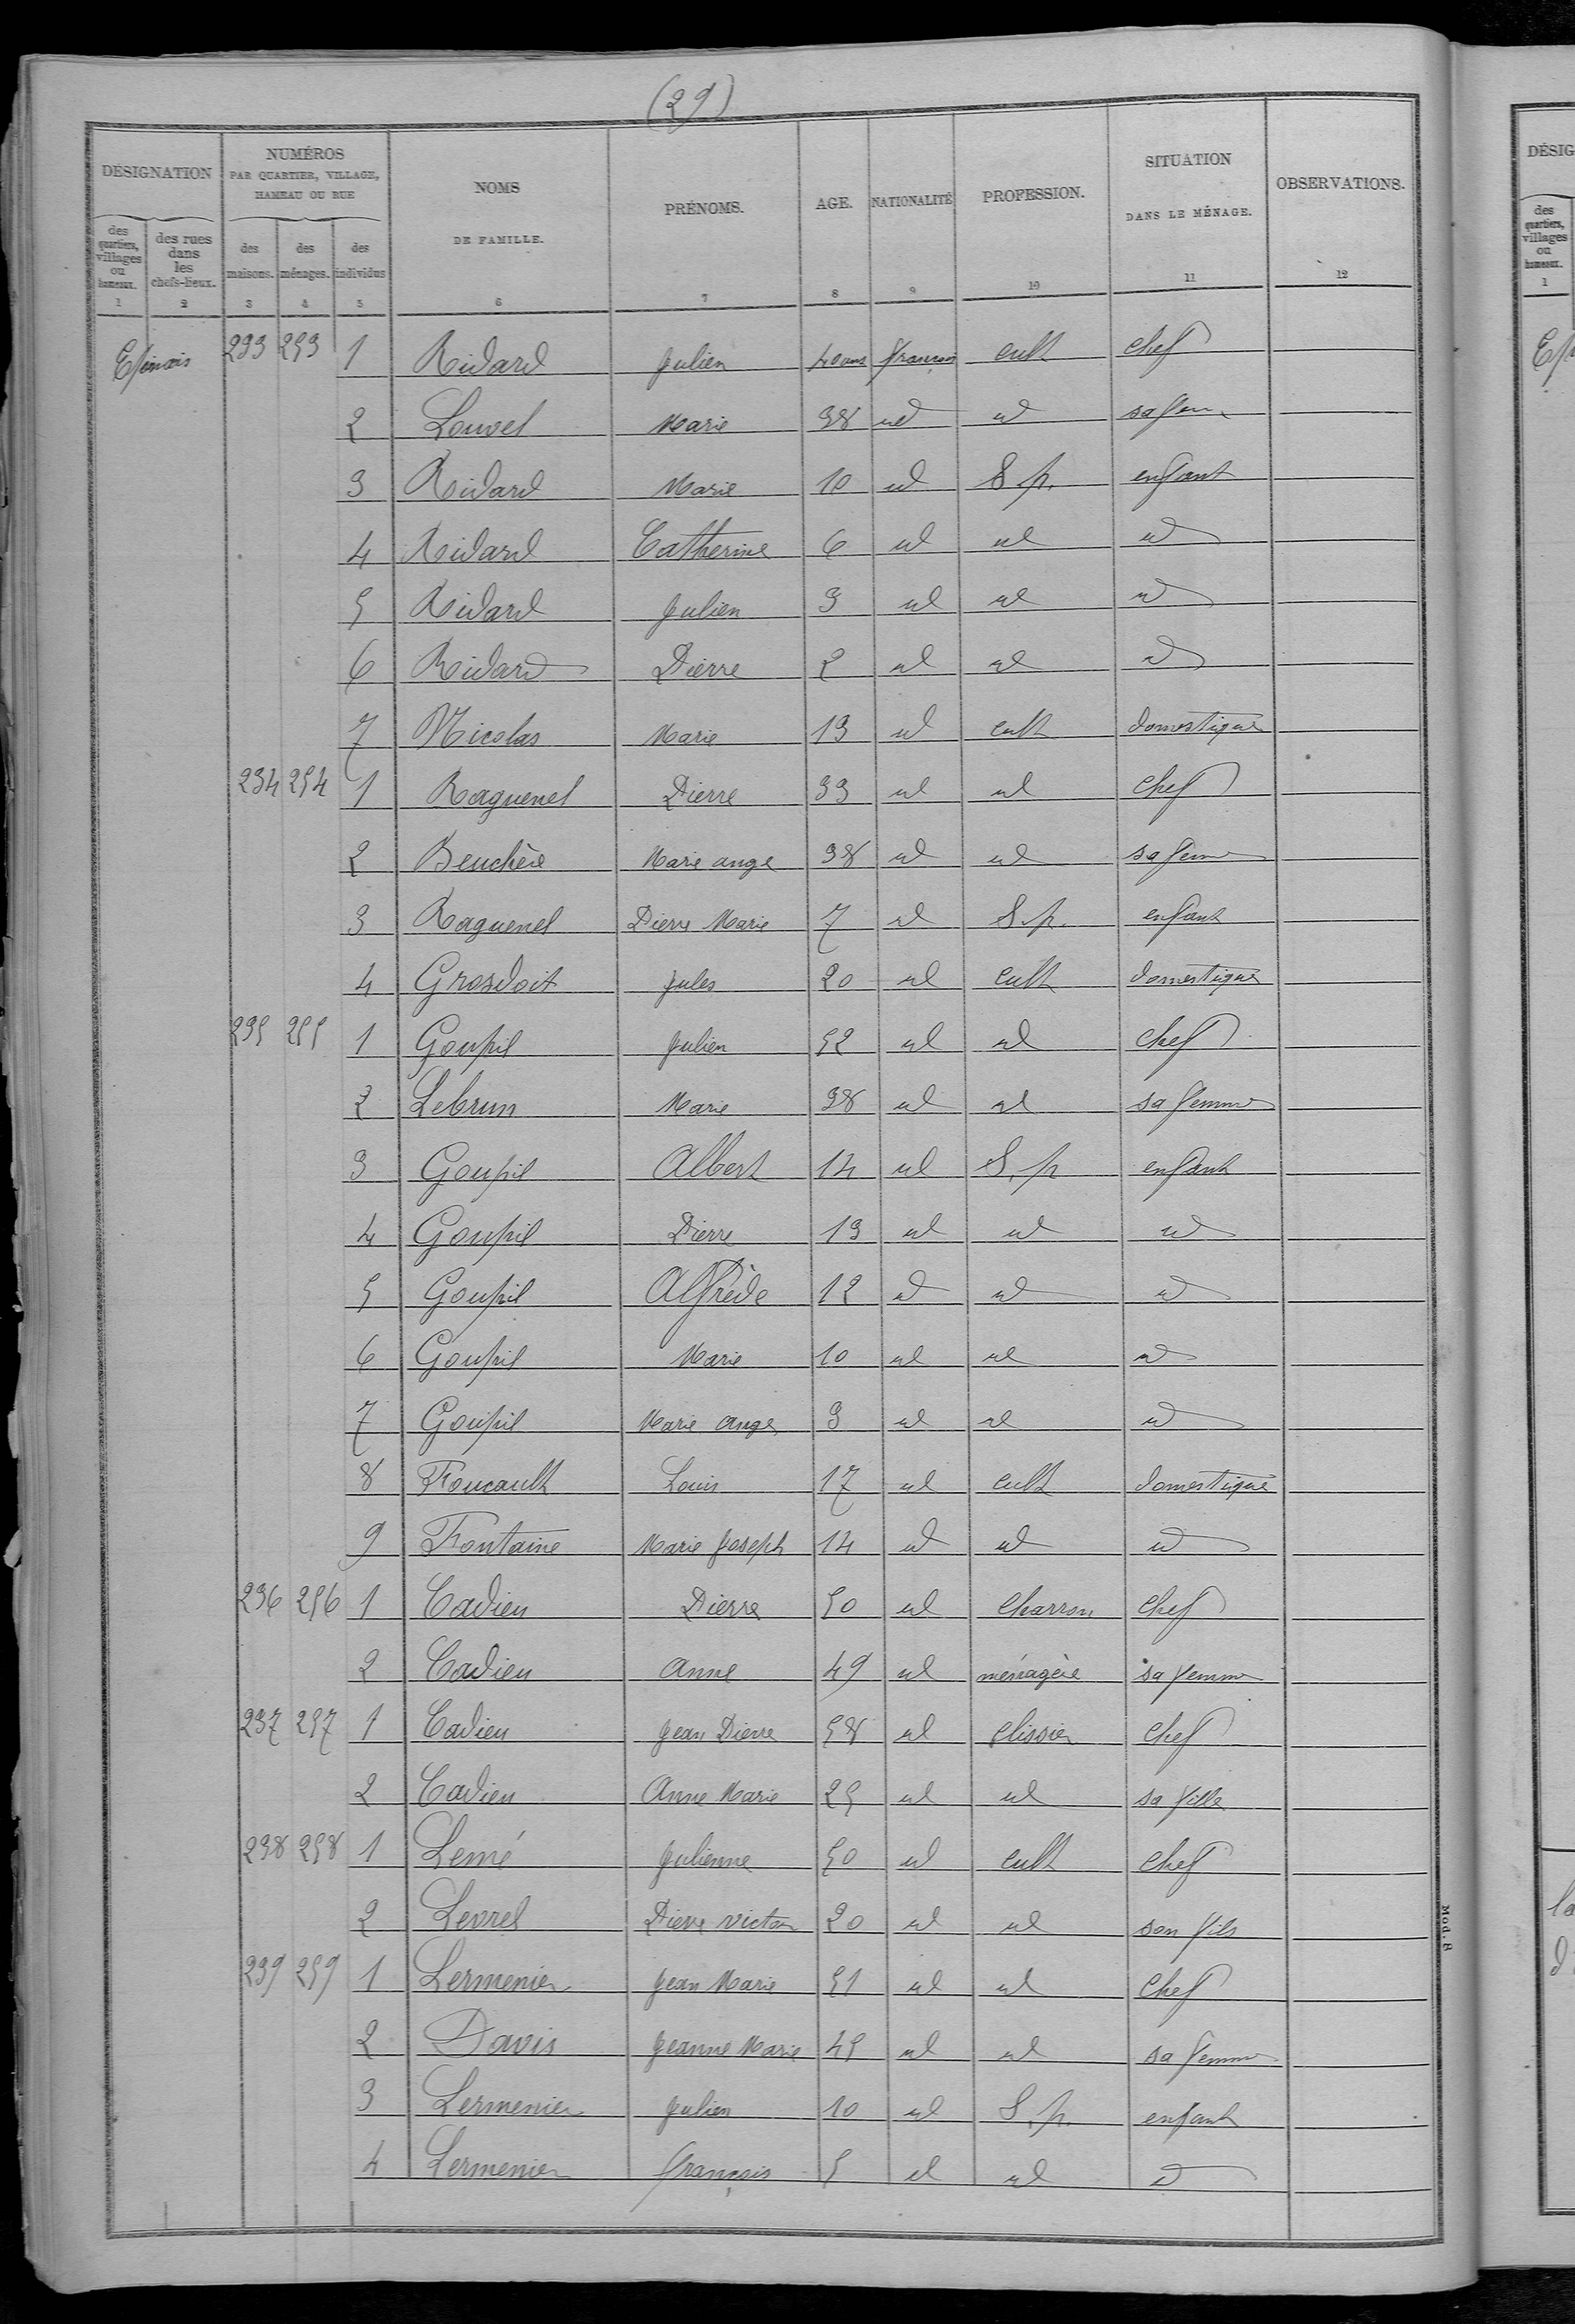 (29)
DÉSIGNATION
NUMÉROS PAR QUARTIER, VILLAGE, HAMEAU OU RUE
NOMS DE FAMILLE.
PRÉNOMS.
AGE.
NATIONALITÉ
PROFESSION.
SITUATION DANS LE MÉNAGE.
OBSERVATIONS.
des quartiers, villages ou hameaux.
des rues dans les chefs-lieux.
des maisons.
des ménages.
des individus
1 2 3 4 5 6 7 8 9 10 11 12
233 253 1 Ridard Julien 40 ans français cult chef
2 Louvel Marie 38 id id sa fem
3 Ridard Marie 10 id S.p. enfant
4 Ridard Catherine 6 id id id
5 Ridard Julien 3 id id id
6 Ridard Pierre 2 id id id
7 Nicolas Marie 13 id cult domestique
234 254 1 Raguenel Pierre 33 id id chef
2 Beuchère Marie ange 38 id id sa femme
3 Raguenel Pierre Marie 7 id S.p. enfant
4 Grosdoit Jules 20 id cult domestique
235 255 1 Goupil Julien 52 id id chef
2 Lebrun Marie 38 id id sa femme
3 Goupil Albert 14 id S.p enfant
4 Goupil Pierre 13 id id id
5 Goupil Alfrède 12 id id id
6 Goupil Marie 10 id id id
7 Goupil Marie Ange 3 id id id
8 Foucault Louis 17 id cult domestique
9 Fontaine Marie Joseph 14 id id id
236 256 1 Cadieu Pierre 50 id Charron Chef
2 Cadieu Anne 49 id ménagère sa femme
237 257 1 Cadieu Jean Pierre 58 id Chef
2 Cadieu Anne Marie 25 id id sa fille
238 258 1 Lemé Julienne 50 id cult chef
2 Levrel Pierre victor 20 id id son fils
239 259 1 Lermenier Jean Marie 51 id id Chef
2 Davis Jeanne Marie 45 id id sa femme
3 Lermenier Julien 10 id S.p. enfant
4 Lermenier françois 5 id id id
Mod. 8
DÉSIG
des quartiers, villages ou hameaux.
1